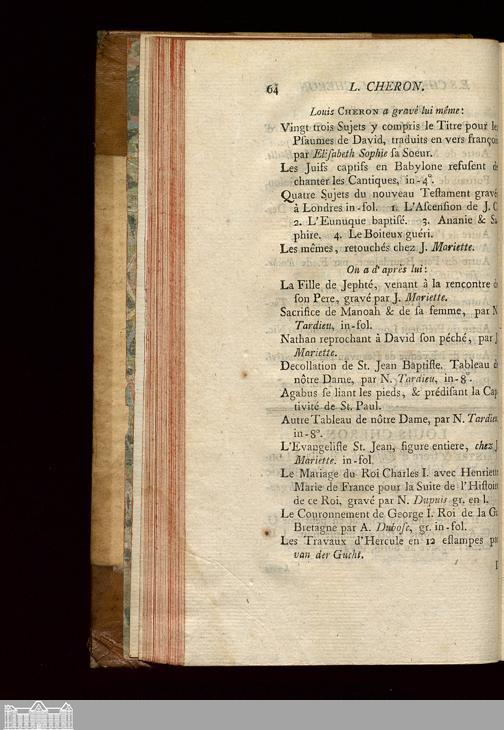 64 L. CHERON.
Louis CHERON a gravé lui même:
Vingt trois Sujets y compris le Titre pour le
Pſaumes de David, traduits en vers françoi
par Eliſabeth Sophie ſa Soeur.
Les Juifs captifs en Babylone refuſent d
chanter les Cantiques, in-4°.
Quatre Sujets du nouveau Teſtament gravé
à Londres in-fol. 1. L'Aſcenſion de J. C
2. L'Eunuque baptiſé. 3. Ananie & Sa
phire. 4. Le Boiteux guéri.
Les mêmes, retouchés chez J. Mariette.
On a d'après lui:
La Fille de Jephté, venant à la rencontre d
ſon Pere, gravé par J. Mariette.
Sacrifice de Manoah & de ſa femme, par N
Tardieu, in-fol.
Nathan reprochant à David ſon péché, par J
Mariette.
Decollation de St. Jean Baptiſte. Tableau d
nôtre Dame, par N. Tardieu, in-8°.
Agabus ſe liant les pieds, & prédiſant la Cap
tivité de St. Paul.
Autre Tableau de nôtre Dame, par N. Tardieu
in-8°.
L'Evangeliſte St. Jean, figure entiere, chez J
Mariette. in-fol.
Le Mariage du Roi Charles I. avec Henriette
Marie de France pour la Suite de l'Hiſtoir
de ce Roi, gravé par N. Dupuis gr. en l.
Le Couronnement de George I. Roi de la G
Bretagne par A. Duboſc, gr. in-fol.
Les Travaux d'Hercule en 12 eſtampes pa
van der Gucht.